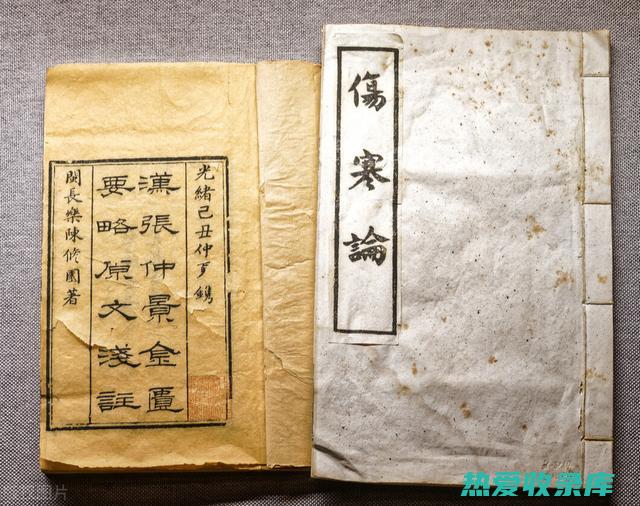 傷寒論
光緒己丑仲夏鐫
漢張仲景金匱
要略原文淺註
閩長樂陳修園著
热爱收录库